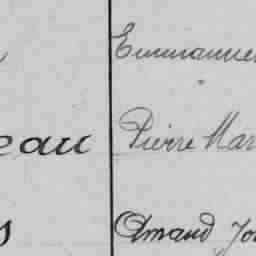 Emmanuel
eau Pierre Mar
s Amand Jo